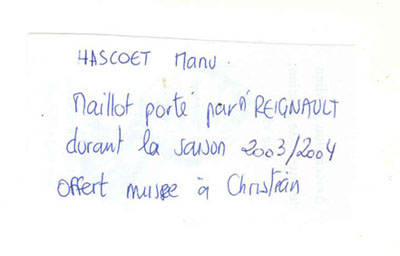 HASCOET Manu.
Maillot porté par M REIGNAULT
durant la saison 2003/2004
Offert musée à Christian